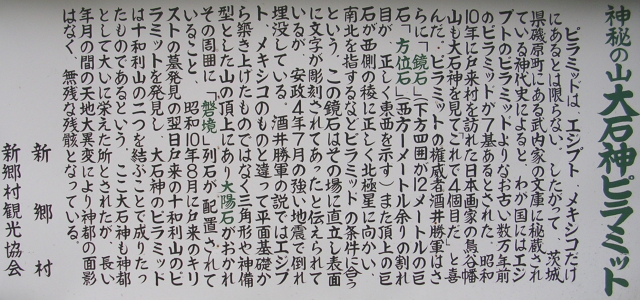 神秘の山大石神ピラミット
ピラミッドは、エジプト、メキシコだけ
にあるとは限らない。したがって、茨城
県磯原町にある武内家の文庫に秘蔵され
ている神代史によると、わが国にはエジ
プトのピラミットよりなお古い数万年前
のピラミッドが7基あるとされた。昭和
10年に戸来村を訪れた日本画家の鳥谷幡
山も大石神を見て「これで4個目だ」と喜
んだ。ピラミットの権威者酒井勝軍はさ
らに「鏡石」(下方四囲が12メートルの巨
石)「方位石」(西方一メートル余りの割れ
目が、正しく東西を示す)また頂上の巨
石が西側の後に正しく北極星に向かい、
南北を指するなどピラミッドの条件に合う
という。この鏡石はその場に直立し表面
に文字が彫刻されてあったと伝えられて
いるが、安政4年7月の強い地震で倒れ
埋没している。酒井勝軍の説ではエジプ
ト、メキシコのものと違って平面基礎か
ら築き上げたものではなく三角形や神備
型とした山の頂上にあり太陽石がおかれ
その周囲に「磐境」列石が配置されて
いること、昭和10年8月に戸来のキリ
ストの墓発見の翌日戸来の十和利山のピ
ラミットを発見し、大石神のピラミット
は十和利山の二つを結ぶことで成りたっ
たものであるという。ここ大石神も神都
として大いに栄えた所とされたが、長い
年月の間の天地大異変により神都の面影
はなく、無残な残骸となっている。
新郷村
新郷村観光協会